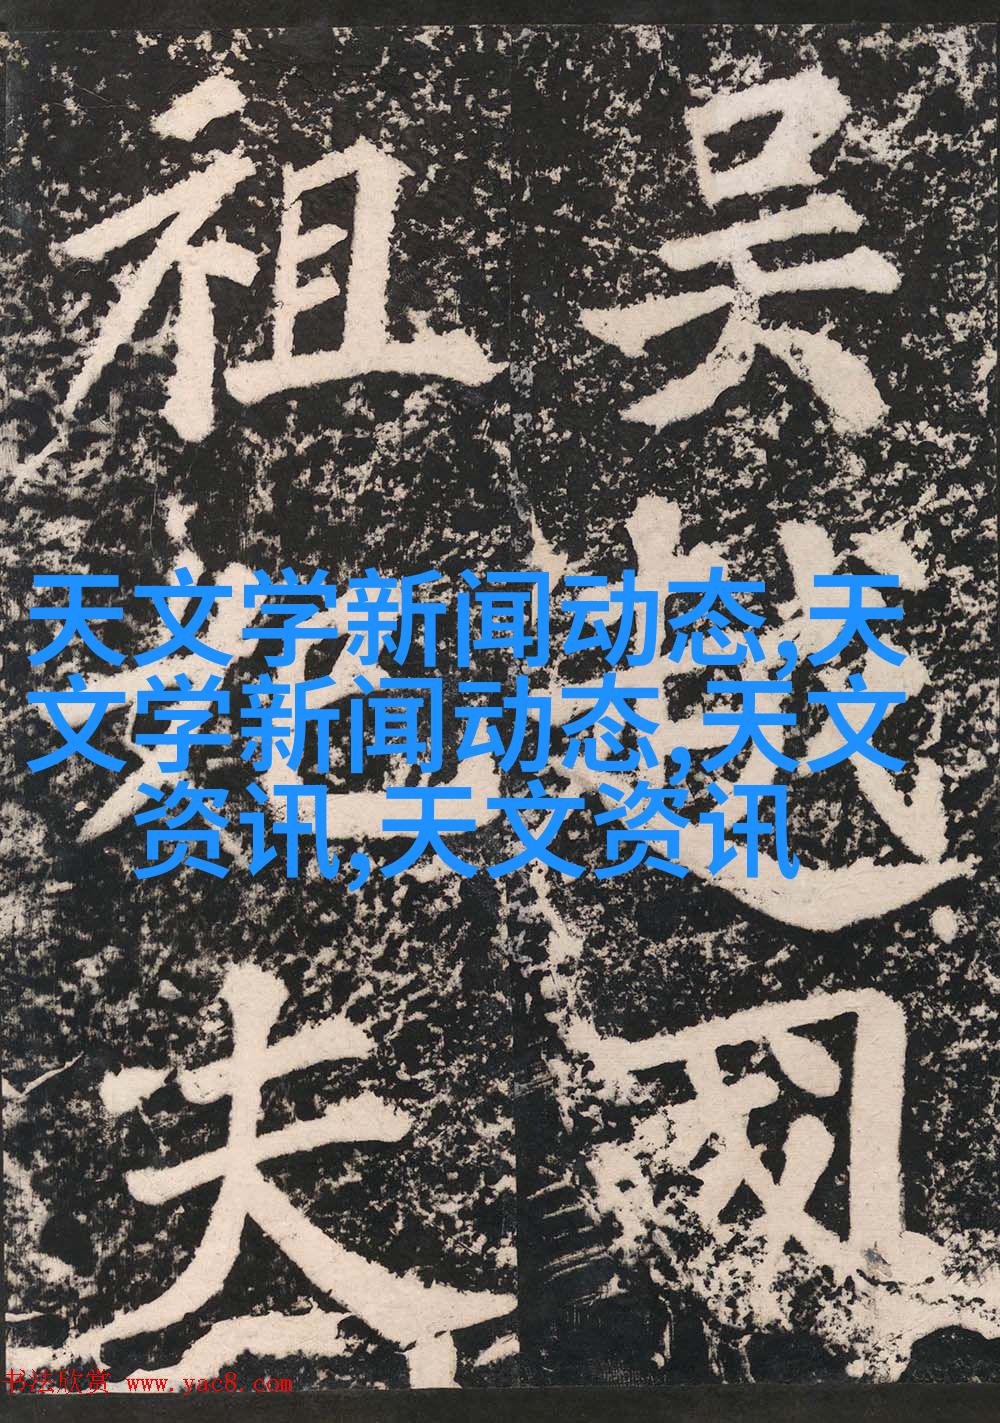 吴越国
祖老夫
天文学新闻动态,天
文学新闻动态,天文
资讯,天文资讯
书法欣赏 www.yac8.com